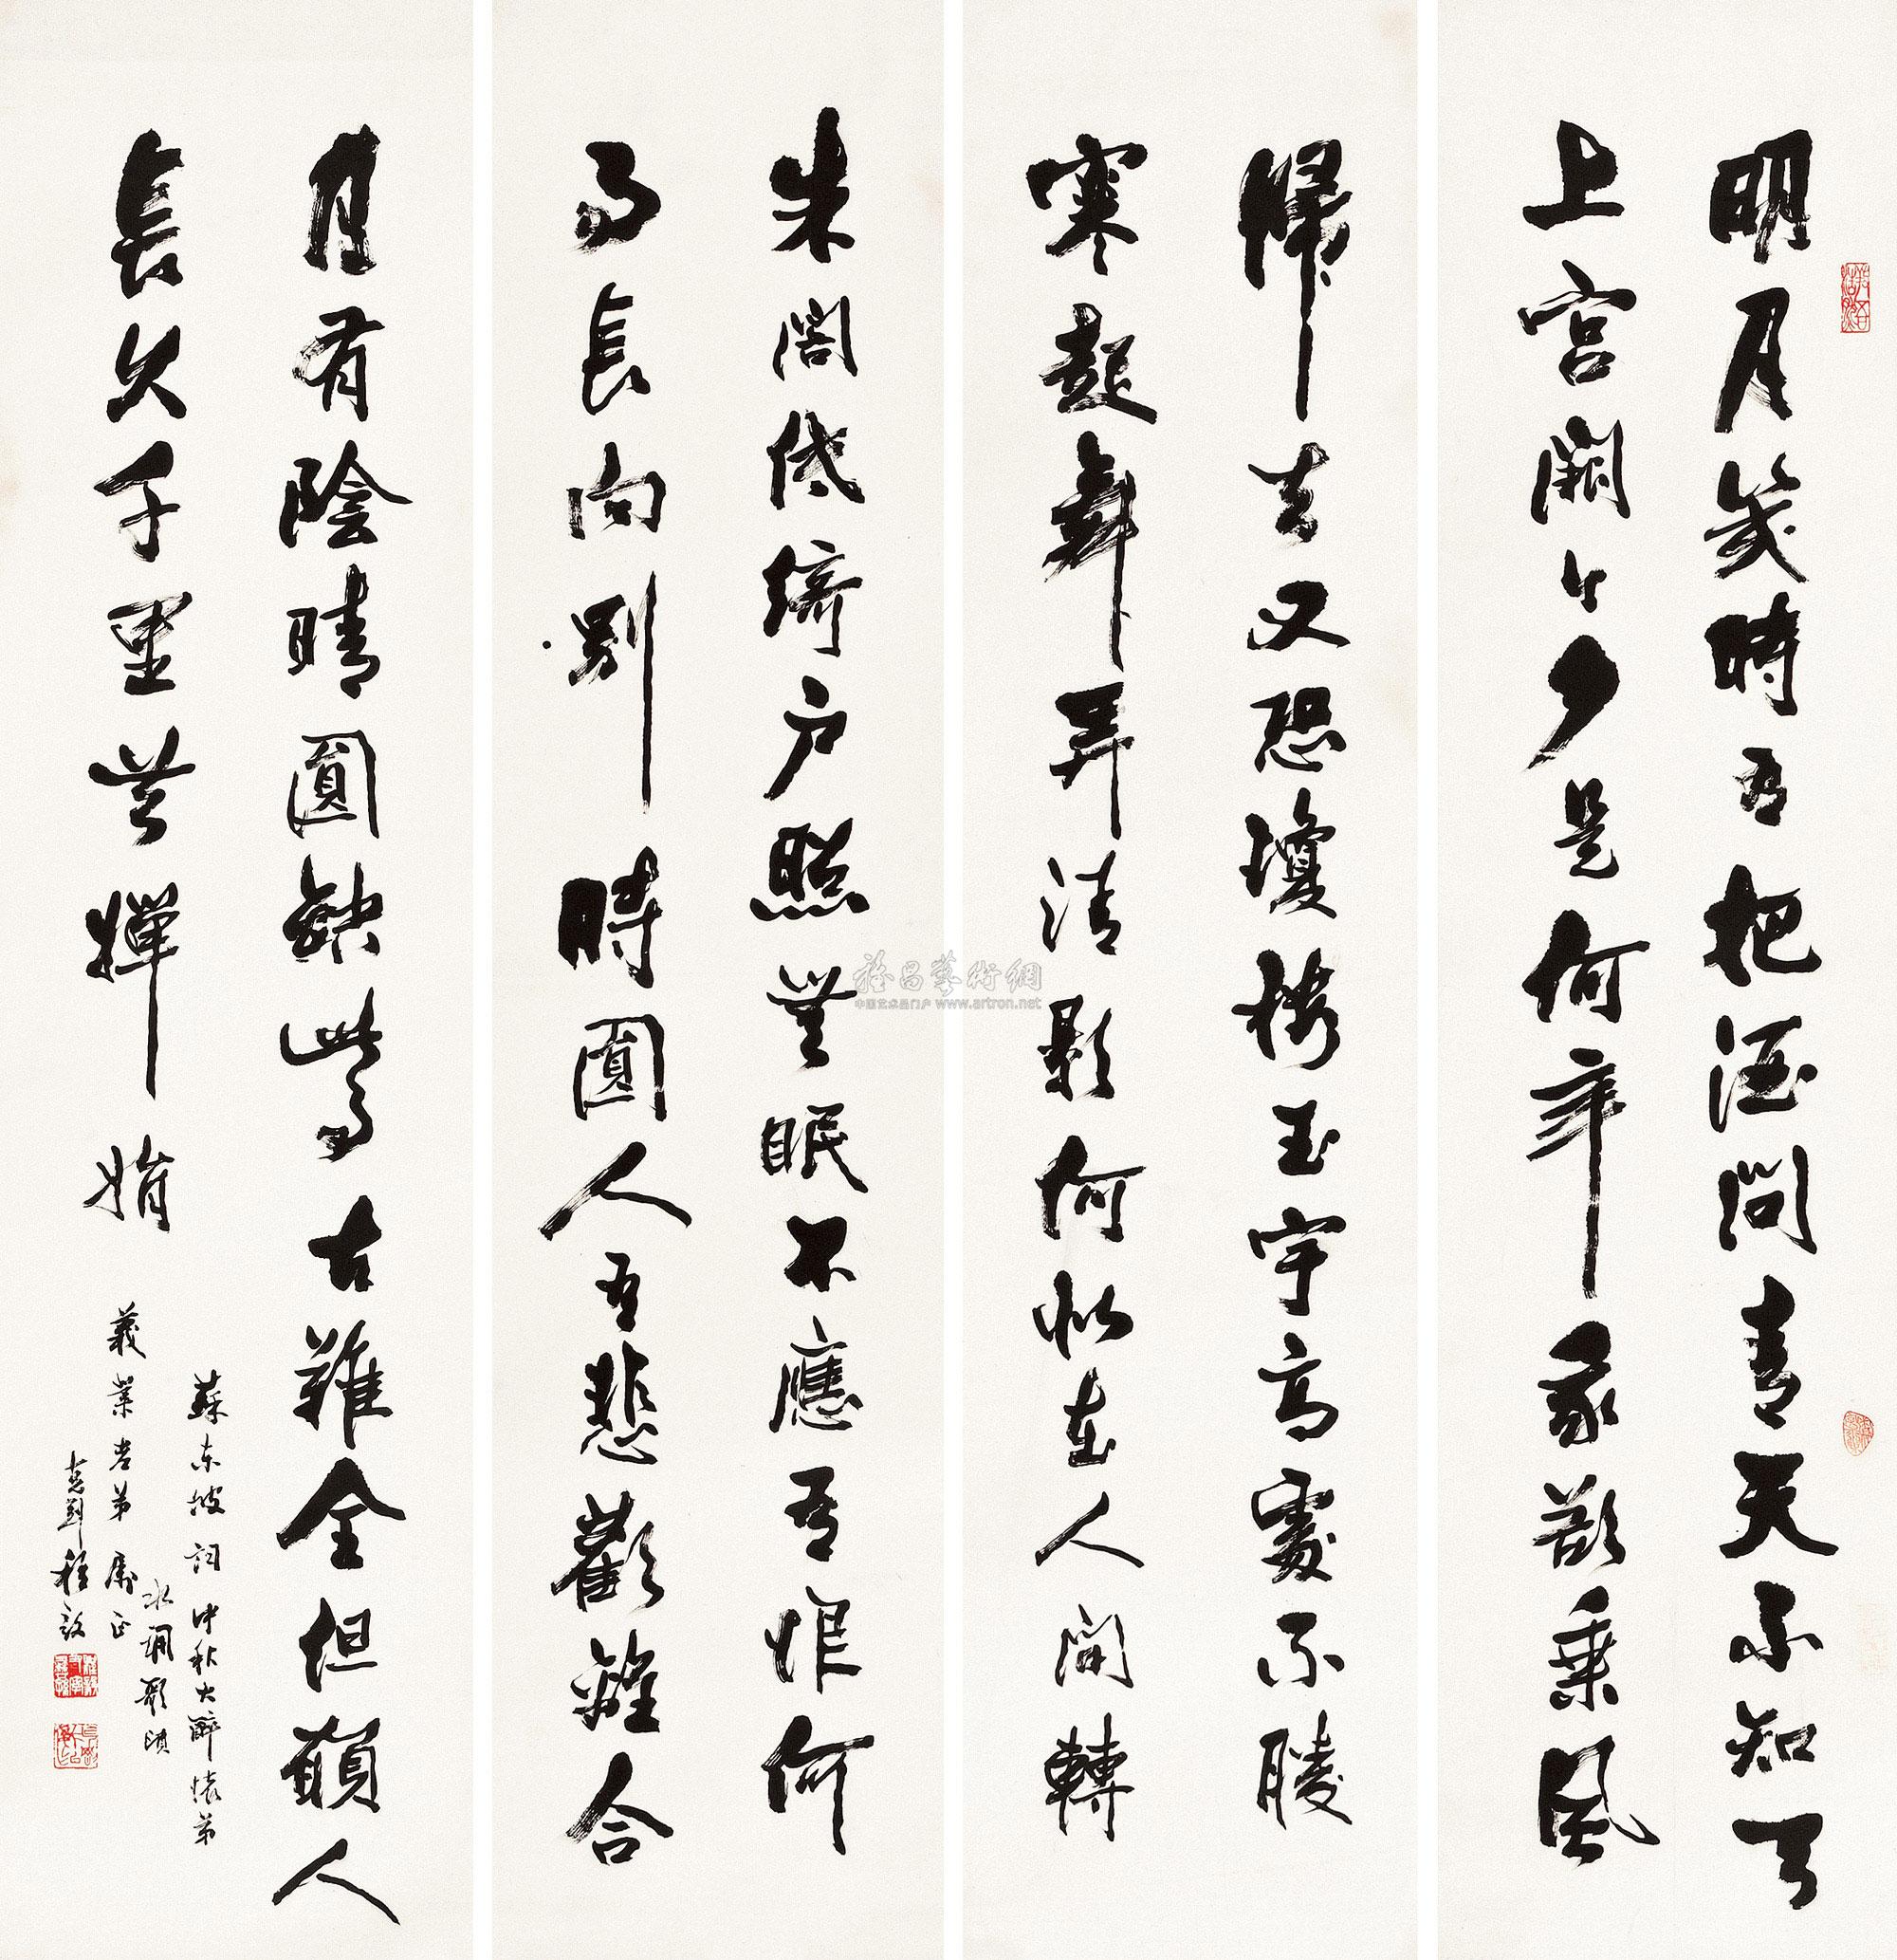 明月幾時有把酒問青天不知天
上宮闕今夕是何年我欲乘風
歸去又恐瓊樓玉宇高處不勝
寒起舞弄清影何似在人間轉
朱閣低綺戶照無眠不應有恨何
事長向別時圓人有悲歡離合
月有陰晴圓缺此事古難全但願人
長久千里共嬋娟
蘇東坡詞中秋大醉懷弟
水調歌頭
義業老弟屬正
雅昌藝術網
中国艺术品门户 www.artron.net